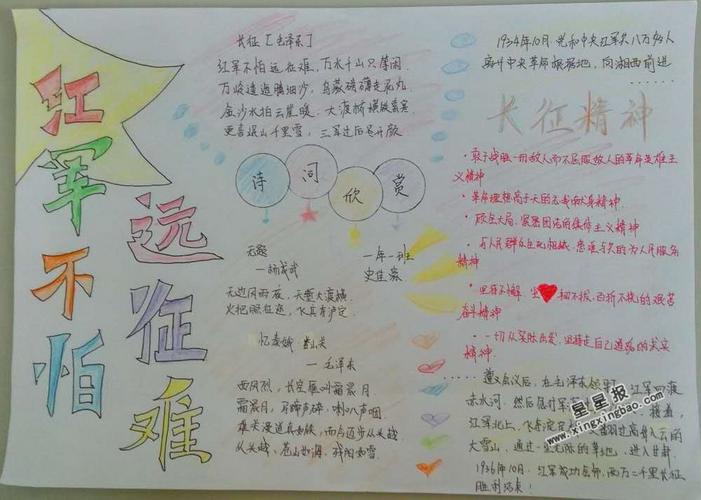 红军不怕
远征难
长征［毛泽东］
红军不怕远征难，万水千山只等闲
万岭逶迤腾细沙，乌蒙磅礴走泥丸
金沙水拍云崖暖，大渡桥横铁索寒
更喜岷山千里雪，三军过后尽开颜
诗词欣赏
无题
一年一班
—杨成武
史佳
无边风雨夜，天堑大渡横
火把照征恋，飞兵夺泸定
忆秦娥 娄山关
—毛泽东
西风烈，长空雁叫霜晨月
霜晨月，马蹄声碎，喇叭声咽
雄关漫道真如铁，而今迈步从头越
从头越，苍山如海，残阳如雪
1934年10月，党和中央红军共八万多人
离开中央革命根据地，向湘西前进
长征精神
·敢于战胜一切敌人而不屈服敌人的革命英雄主
义精神
·革命理想高于天的忠诚献身精神
·顾全大局，紧密团结的集体主义精神
·与人民群众血肉相贴，患难与共的为人民服务
精神
·坚持不懈 坚忍不拔，百折不挠的艰苦
奋斗精神
·一切从实际出发，坚持走自己道路的求实
精神
遵义会议后，在毛泽东领导下，红军四渡
赤水河．然后急行军
红军北上，飞夺泸定
大雪山，通过一望无际的草地，进入甘肃
1936年10月．红军成功会师，两万二千里长征
胜利结束！
星星报
xingxingbao.com